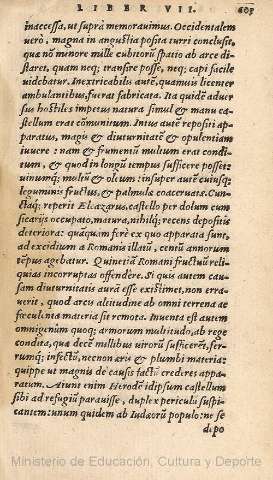 LIBER VII. 603
inaccessa, ut suprà memorauimus. Occidentalem
uerò, magna in angustia posita turri conclusit,
quæ nõ minore mille cubitorū spatio ab arce di-
staret, quam neq; transire posse, neq; capi facile
uidebatur. Inextricabilis autē, quamuis licenter
ambulantibus, fuerat fabricata. Ita quidē aduer
sus hostiles impetus natura simul & manu ca-
stellum erat cōmunitum. Intus autē repositi ap-
paratus, magis & diuturnitatē & opulentiam
iuuere: nam & frumenti multum erat condi-
tum, & quod in longū tempus sufficere posset:
uinumq; multū & oleum: insuper autē cuiusq;
leguminis fructus, & palmulæ coaceruatæ. Cun-
ctaq; reperit Eleazarus, castello per dolum cum
sicarijs occupato, matura, nihilq; recens depositis
deteriora: quāquam ferè ex quo apparata sunt,
ad excidium a Romanis illatū, centū annorum
tēpus agebatur. Quinetiā Romani fructuū reli-
quias incorruptas offendere. Si quis autem cau-
sam diuturnitatis aurā esse existimet, non erra-
uerit, quod arcis altitudine ab omni terrena ac
fæculenta materia sit remota. Inuenta est autem
omnigenûm quoq; armorum multitudo, ab rege
condita, quæ decē millibus uirorū sufficeret, fer-
rumq; infectū, necnon æris & plumbi materia:
quippe ut magnis de causis factū crederes appa-
ratum. Aiunt enim Herodē idipsum castellum
sibi ad refugiū parauisse, duplex periculū suspi-
cantem: unum quidem ab Iudæorū populo: ne se
depo
Ministerio de Educación, Cultura y Deporte